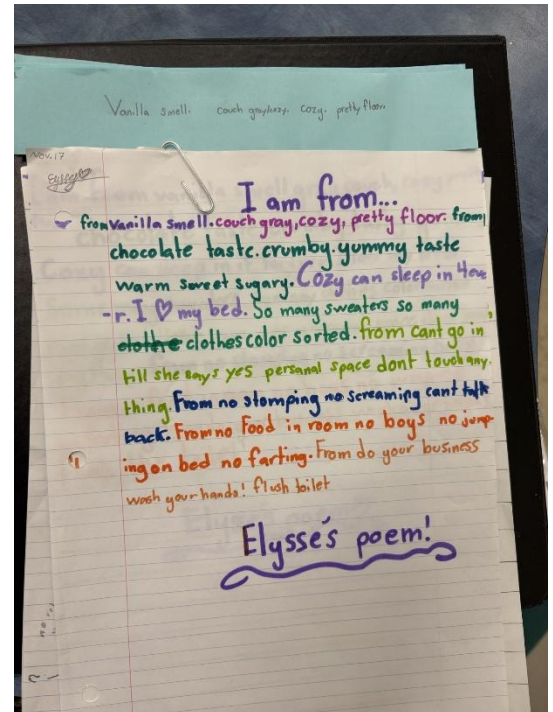 Vanilla smell. couch gray,cozy. Cozy. pretty floor.
Nov.17
Elysse
I am from...
from Vanilla smell. couch gray, cozy, pretty floor. from
chocolate taste. crumby. yummy taste
warm sweet sugary. Cozy can sleep in 4eve
-r. I ♡ my bed. So many sweaters so many
clothe clothes color sorted. from cant go in
till she says yes persanal space dont touch any.
thing. From no stomping no screaming cant talk
back. From no Food in room no boys no jump
ing on bed no farting. From do your business
wash your hands! flush toilet
Elysse's poem!